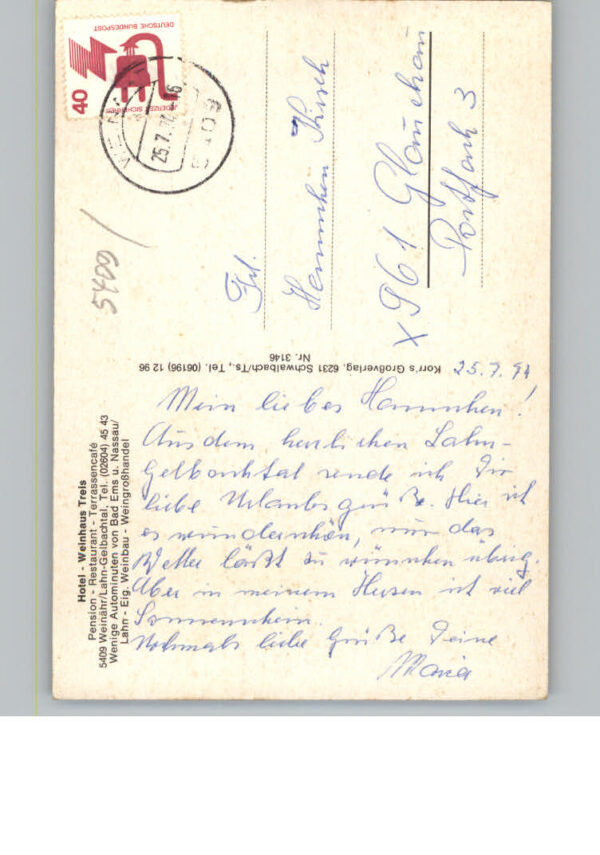 Hotel - Weinhaus Treis
Pension - Restaurant - Terrassencafé
5409 Weinähr/Lahn-Gelbachtal, Tel. (02604) 45 43
Wenige Autominuten von Bad Ems u. Nassau/
Lahn - Eig. Weinbau - Weingroßhandel
25.7.
Mein liebes Hannchen!
Aus dem herrlichen Lahn-
Gelbachtal sende ich Dir
liebe Urlaubsgrüße. Hier ist
es wunderschön, nur das
Wetter läßt zu wünschen übrig.
Aber in meinem Herzen ist viel
Sonnenschein.
Nochmals liebe Grüße Deine
Maria
Korr's Großverlag, 6231 Schwalbach/Ts., Tel. (06196) 12 96
Nr. 3146
Frl.
Hannchen
X 961 Glauchau
Postfach 3
5409
DEUTSCHE BUNDESPOST
JEDERZEIT SICHERHEIT
40
25.7.
5409